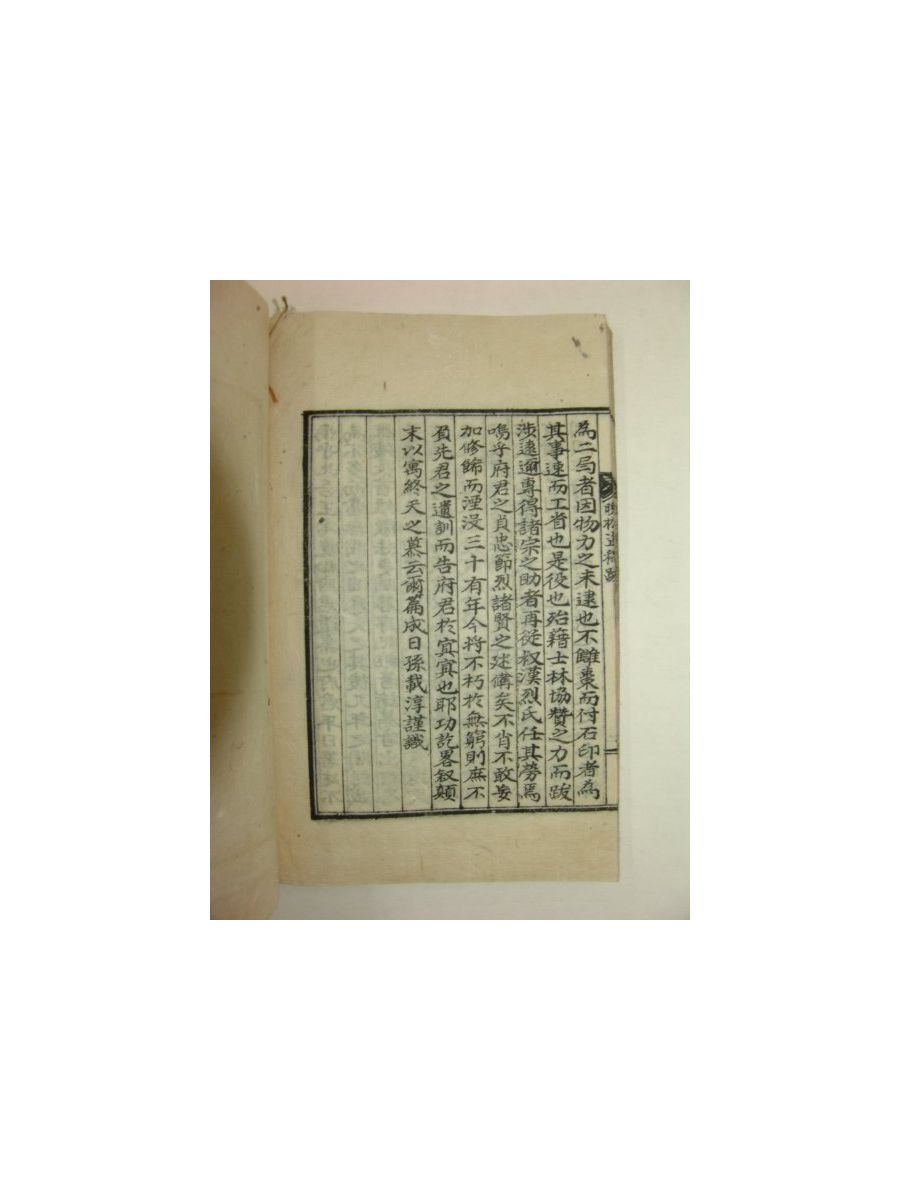 晩松遺稿跋
為二局者因物力之未逮也不雠棗而付石印者為
其事速而工省也是役也殆藉士林協贊之力而跋
涉遠邇專得諸宗之助者再從叔漢烈氏任其勞焉
嗚乎府君之貞忠節烈諸賢之述備矣不肖不敢妄
加修餙而湮没三十有年今将不朽於無窮則庶不
負先君之遺訓而告府君於冥冥也耶功訖畧叙顛
末以寓終天之慕云爾篇成日孫載淳謹識